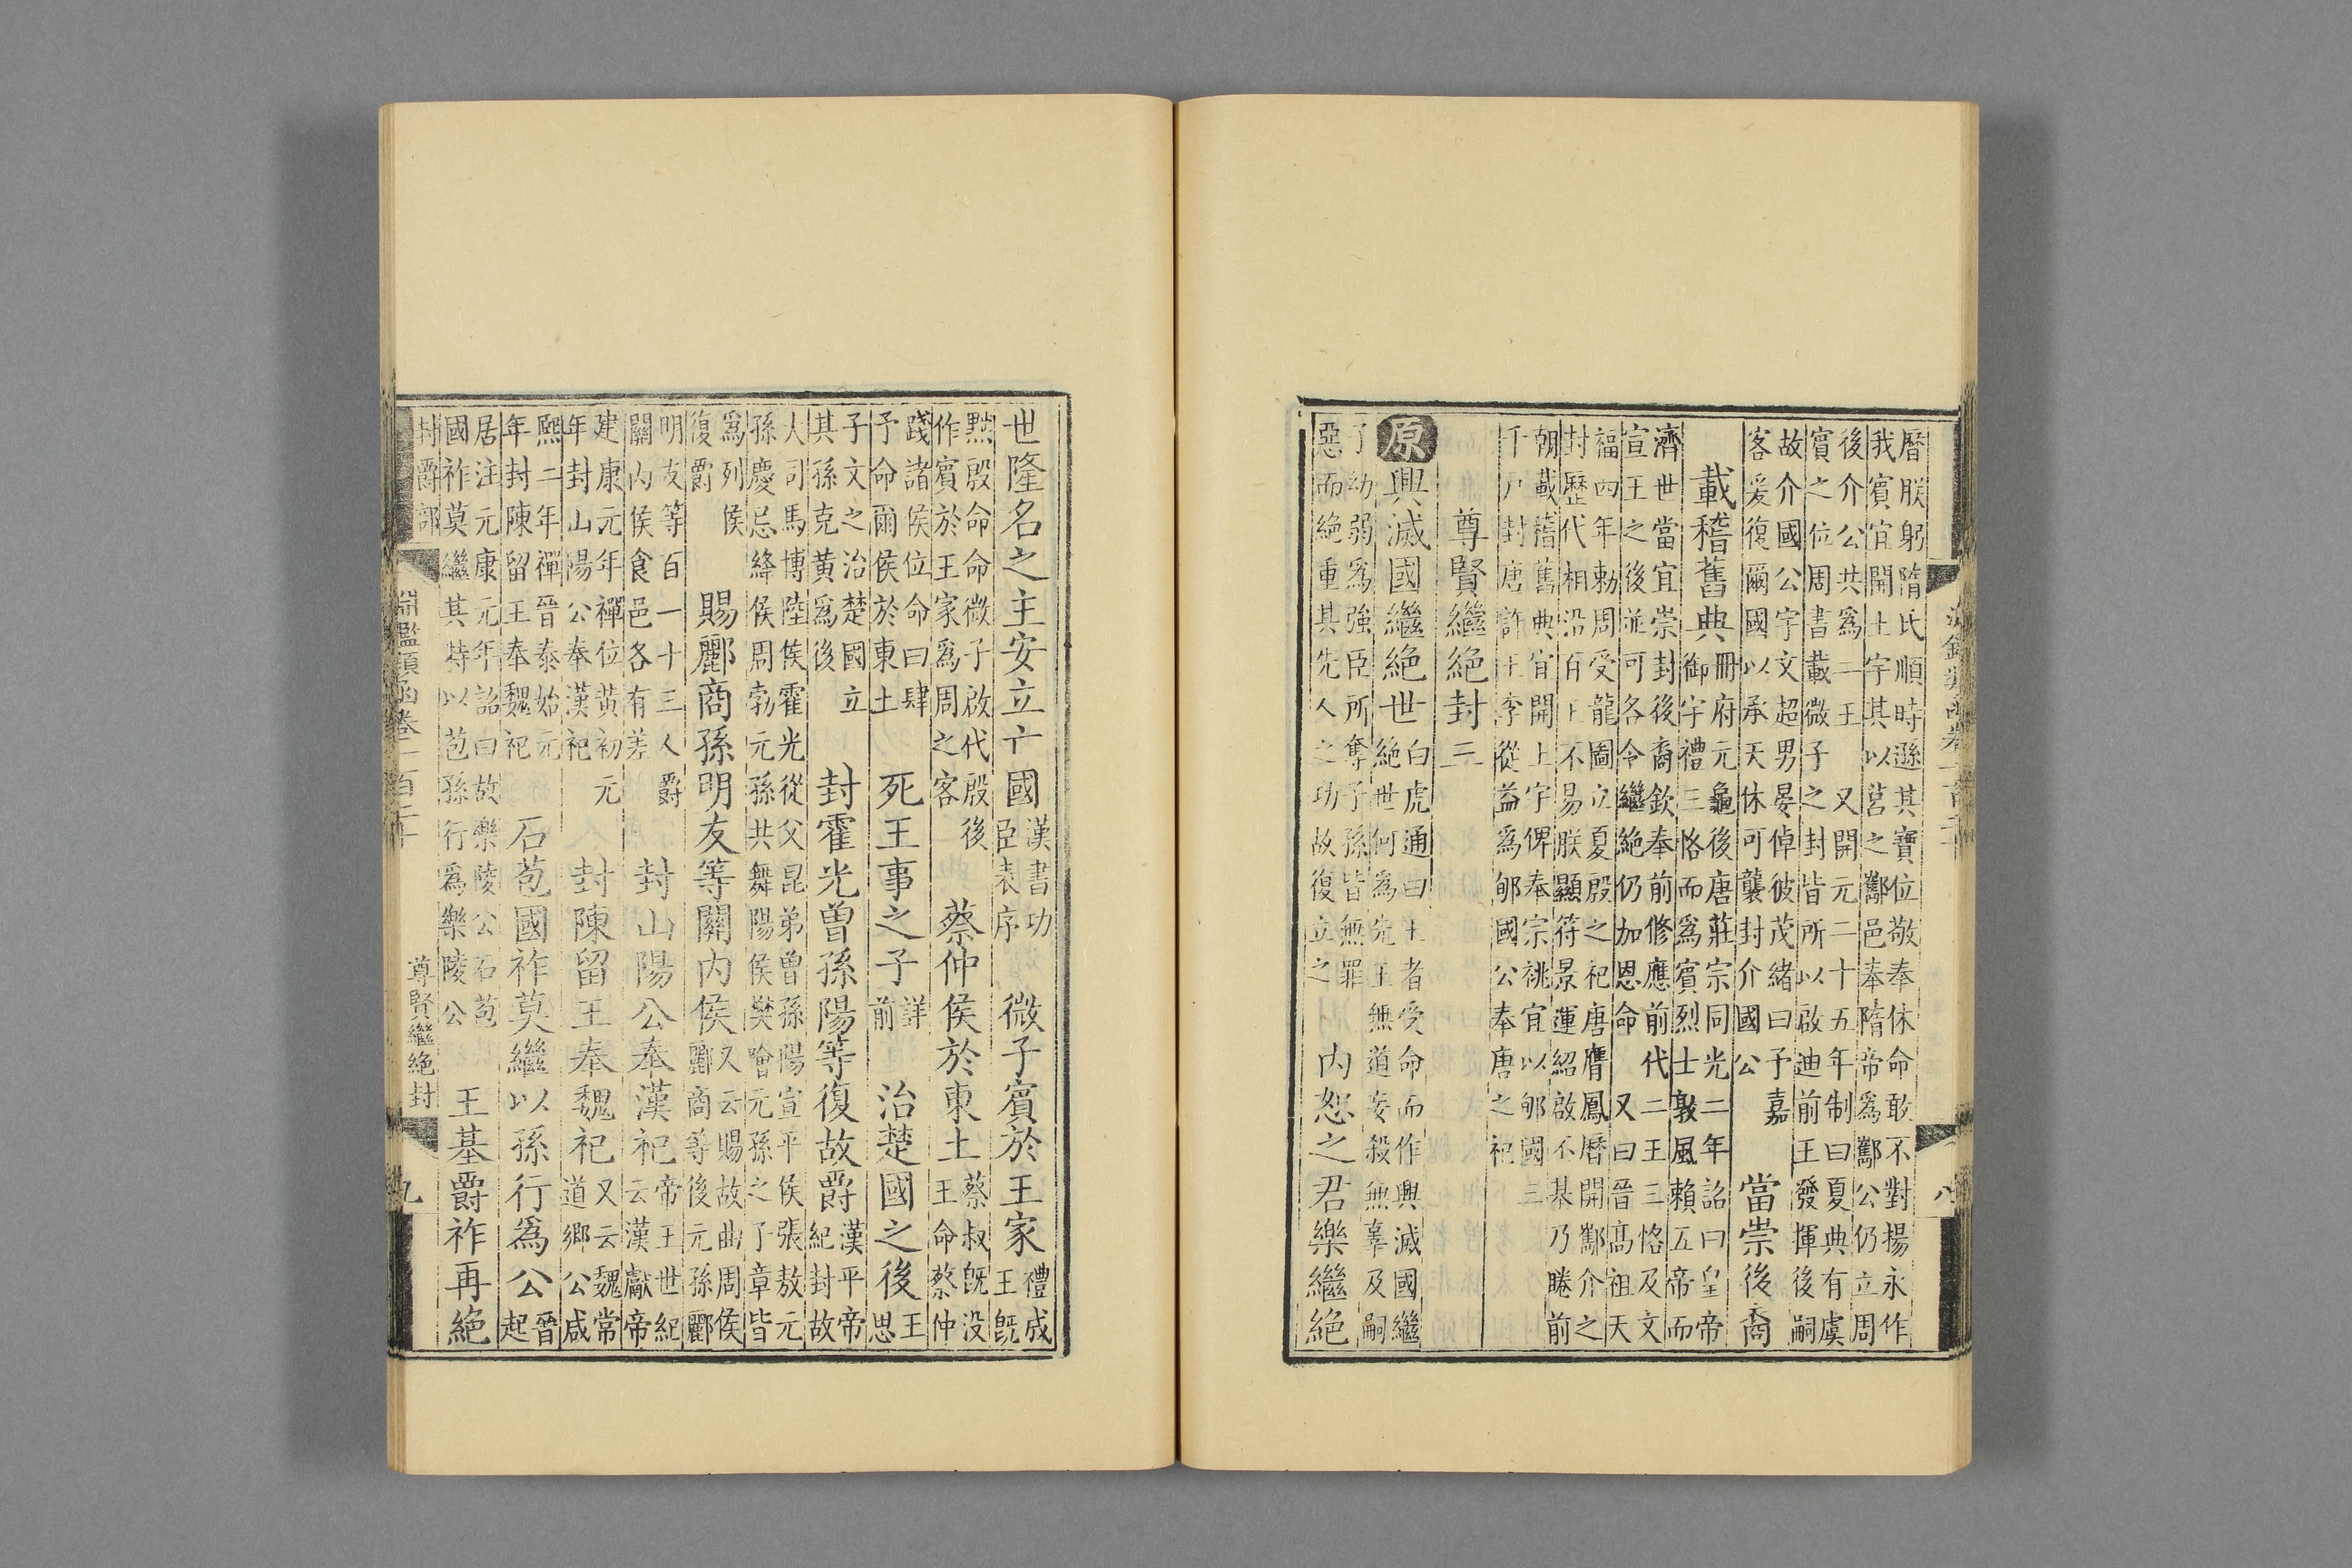 曆朕躬隋氏順時遜其寶位敬奉休命敢不對揚永作
我賓宜開土宇其以莒之酅邑奉隋帝爲酅公仍立周
後介公共爲二王　又開元二十五年制曰夏典有虞
賓之位周書載微子之封皆所以啟迪前王發揮後嗣
故介國公宇文超男晏倬彼茂緒曰予嘉
客爰復爾國以承天休可襲封介國公
當崇後裔
載稽舊典
冊府元龜後唐莊宗同光二年詔曰皇帝
御宇禮三恪而爲賓烈士敦風賴五帝而
濟世當宜崇封後裔欽奉前修應前代二王三恪及文
宣王之後並可各令繼絕仍加恩命　又曰晉高祖天
福四年勅周受龍圖立夏殷之祀唐膺鳳曆開酅介之
封歷代相沿百王不易朕顯符景運紹啟不基乃睠前
朝載稽舊典宜開土宇俾奉宗祧宜以郇國三
千戶封唐許王李從益爲郇國公奉唐之祀
尊賢繼絕封三
原興滅國繼絕世
白虎通曰王者受命而作興滅國繼
絕世何爲先王無道妄殺無辜及嗣
子幼弱爲強臣所奪子孫皆無罪
惡而絕重其先人之功故復立之
內恕之君樂繼絕
世隆名之主安立亡國
漢書功
臣表序
微子賓於王家
禮成
王既
黙殷命命微子啟代殷後
作賓於王家爲周之客
蔡仲侯於東土
蔡叔既没
王命蔡仲
踐諸侯位命曰肆
予命爾侯於東土
死王事之子
詳
前
治楚國之後
王
思
子文之治楚國立
其孫克黃爲後
封霍光曾孫陽等復故爵
漢平帝
紀封故
大司馬博陸侯霍光從父昆弟曾孫陽宣平侯張敖元
孫慶忌絳侯周勃元孫共舞陽侯樊噲元孫之子章皆
爲列侯
復爵
賜酈商孫明友等關內侯
又云賜故曲周侯
酈商等後元孫酈
明友等百一十三人爵
關內侯食邑各有差
封山陽公奉漢祀
帝王世紀
云漢獻帝
建康元年禪位黃初元
年封山陽公奉漢祀
封陳留王奉魏祀
又云魏常
道鄉公咸
熙二年禪晉泰始元
年封陳留王奉魏祀
石苞國祚莫繼以孫行爲公
晉
起
居注元康元年詔曰故樂陵公石苞
國祚莫繼其特以苞孫行爲樂陵公
王基爵祚再絕
封爵部
淵鑑類函卷一百二十
尊賢繼絕封
九